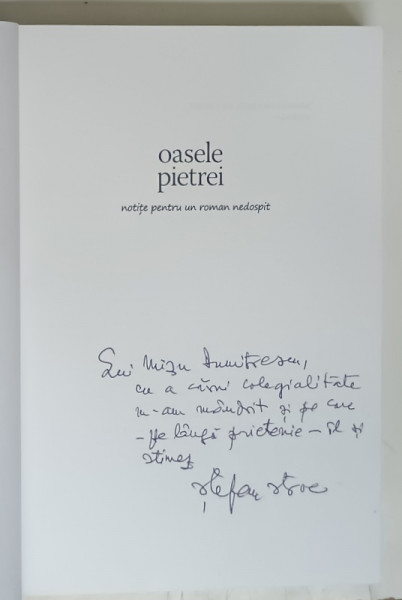 oasele
pietrei
notițe pentru un roman nedospit
Lui Mișu Dumitrescu,
cu a cărui colegialitate
m-am mândrit și pe care
- pe lângă prietenie - îl și
stimez
Ștefan Stoe